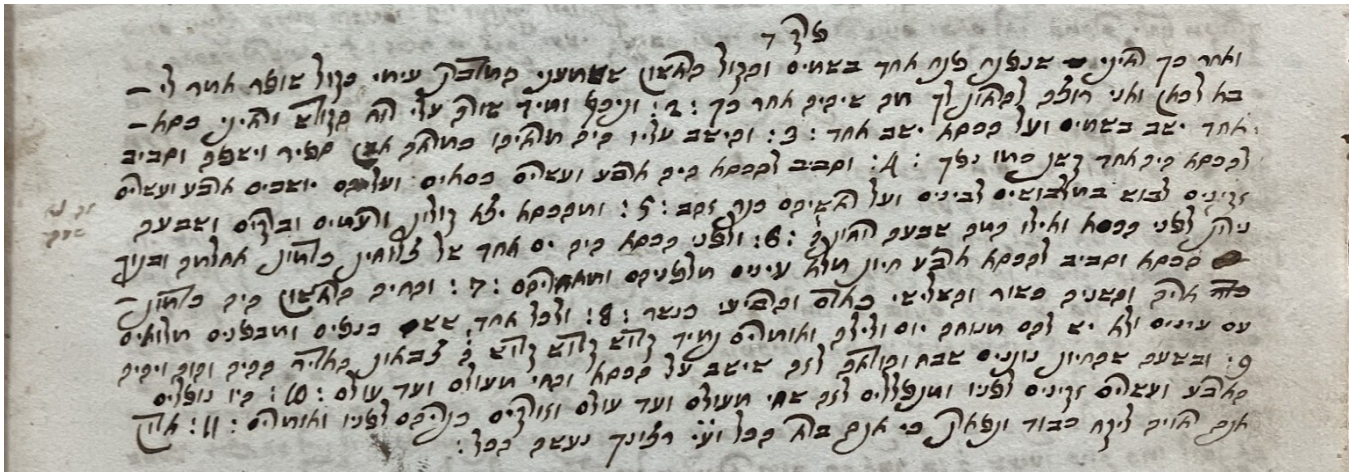 פרק ד
ואחר כך האיני שנפתח פתח אחד בשמים והקול הראשון ששמעני המדבר עימי כקול שופר אמר לי –
בא לכאן ואני רוצה להראות לך מה שיהיה אחר כך :2: ומיד שורה עלי רוח הקודש והאיני כסא –
אחד ישב בשמים ועל הכסא ישב אחד :3: והישב עליו היה מראהו כמראה אבן ספיר וישפה וסביב
להכסא היה אחד קשת כמו נפך :4: וסביב להכסא היה ארבע ועשרים כסאים ועליהם יושבים ארבע ועשרים
זקינים לבוש במלבושים לבינים ועל ראשיהם כתר זהב :5: ומהכסא יצא קולות ורעמים וברקים ושבעה
נירות לפני הכסא ואילו המה שבעה :6: ולפני הכסא היה ים אחד של צלוחית ובתוך
הכסא וסביב להכסא ארבע חיות מלא עינים מלפניהם ומאחריהם :7: והחיה הראשון היה
אריה והשניה כשור והשלישי כאדם והרביעי כנשר :8: ולכל אחד ששה כנפים ומבפנים מלואים
עם עינים ולא יש להם מנוחה יום ולילה ואומרים תמיד קדוש קדוש קדוש ה׳ צבאות היה והוה ויהיה
9: ובשעה שהחיות נותנים שבח והודאה לזה שישב על הכסא והחי מעולם ועד עולם :10: היו נופלים
הארבע ועשרים זקינים לפניו ומתפללים לזה שחי מעולם ועד עולם וזורקים כתריהם לפניו ואומרים :11:
אתה ראוי ליקח כבוד ותפארת כי אתה ברא הכל וע״י רצונך נעשה הכל: